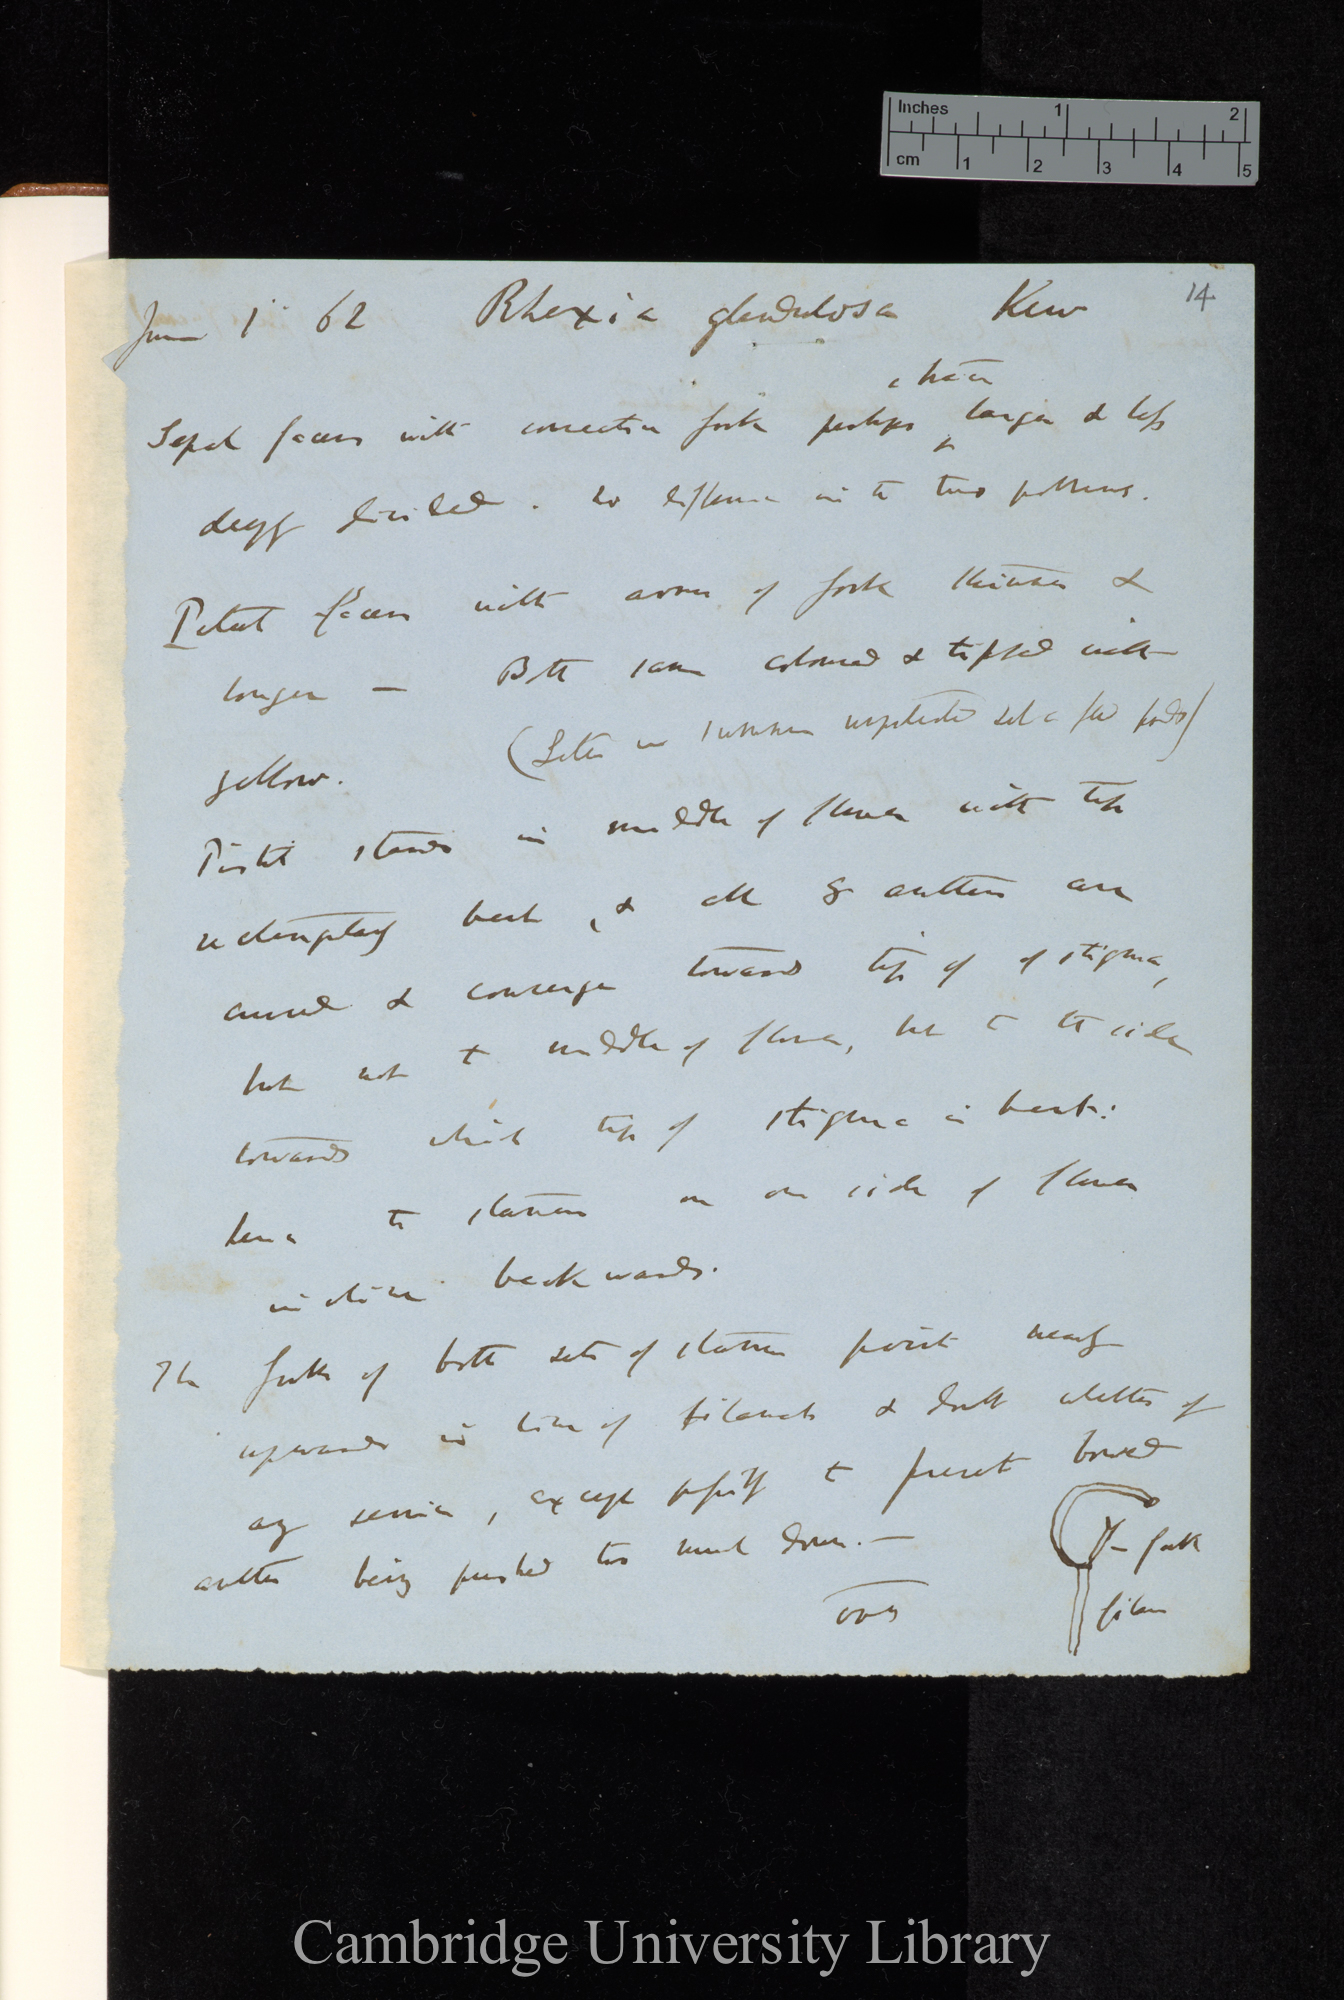 Inches 1 2
cm 1 2 3 4 5
14
June 1st 62 Rhexia glandulosa Kew
a trace
Sepal facers with connective fork perhaps larger & less
deeply divided. No difference in the two pollens.
Petal facers with arms of fork thinner &
longer — Both same coloured & tipped with
yellow. (Later in summer set a few pods)
Pistil stands in middle of flower with tip
rectangularly bent, & all 8 anthers are
curved & converge towards tip of of stigma,
but not to middle of flower, but to the side
towards which tip of stigma is bent:
hence the stamens on one side of flower
incline backwards.
The forks of both sets of stamens point nearly
upwards in line of filaments & doubt whether of
any service, except possibly to prevent bowed
anther being pushed too much down.—
fork
filam
over
Cambridge University Library